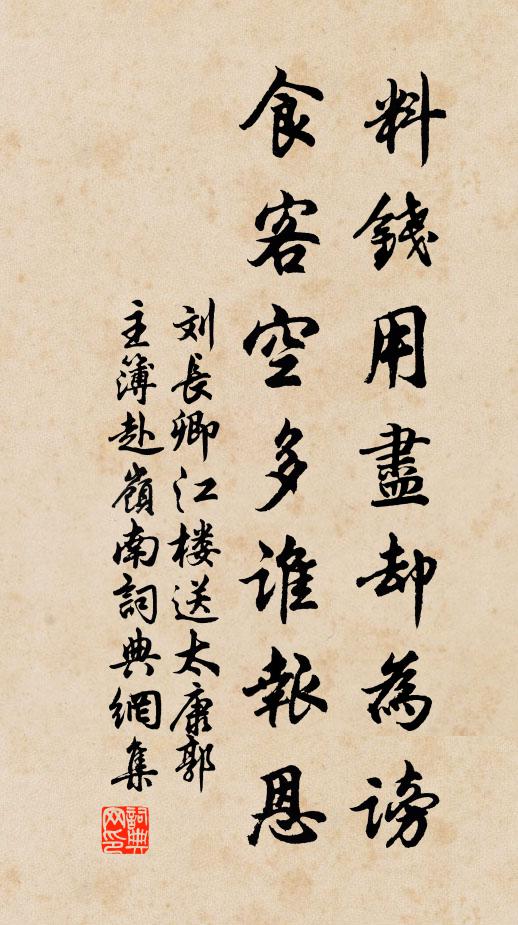 料錢用盡却為謗
食客空多誰報恩
刘長卿江楼送太康郭
主簿赴嶺南詞典網集
詞典網印